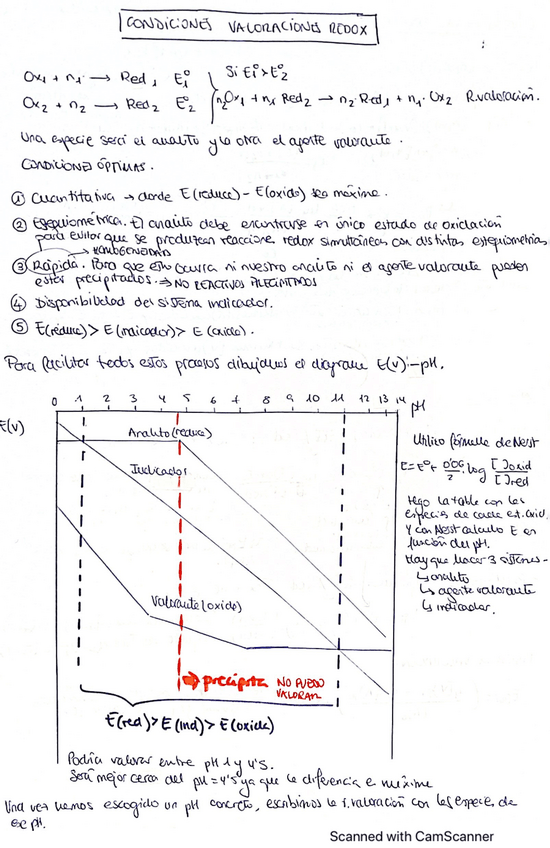 CONDICIONES VALORACIONES REDOX
Ox₁ + n₁ → Red₁ E₁° Si E₁° > E₂°
Ox₂ + n₂ → Red₂ E₂° n₂Ox₁ + n₁ Red₂ → n₂ Red₁ + n₁ Ox₂ R.valoración.
Una especie será el analito y la otra el agente valorante.
CONDICIONES ÓPTIMAS.
① Cuantitativa → donde E(reduce) - E(oxida) sea máxima.
② Estequiométrica. El analito debe encontrarse en único estado de oxidación
para evitar que se produzcan reacciones redox simultáneas con distintas estequiometrías
→ HOMOGENEIDAD
③ Rápida. Para que esto ocurra ni nuestro analito ni el agente valorante pueden
estar precipitados. → NO REACTIVOS PRECIPITADOS
④ Disponibilidad del sistema indicador.
⑤ E(reduce) > E(indicador) > E(oxida).
Para facilitar todos estos procesos dibujamos el diagrama E(V)-pH.
0 1 2 3 4 5 6 7 8 9 10 11 12 13 14 pH
E(V)
Analito (reduce)
Indicador
Valorante (oxida)
→ precipita NO PUEDO
VALORAR
E(red) > E(ind) > E(oxida)
Utilizo fórmula de Nernst
E = E° + 0'06/2 · log [ ]oxid / [ ]red
Hago la tabla con las
especies de cada est. oxid.
Y con Nernst calculo E en
función del pH.
Hay que hacer 3 sistemas -
↳ analito
↳ agente valorante
↳ indicador.
Podría valorar entre pH 1 y 4'5.
Será mejor cerca del pH = 4'5 ya que la diferencia es máxima
Una vez hemos escogido un pH concreto, escribimos la r.valoración con las especies de
ese pH.
Scanned with CamScanner